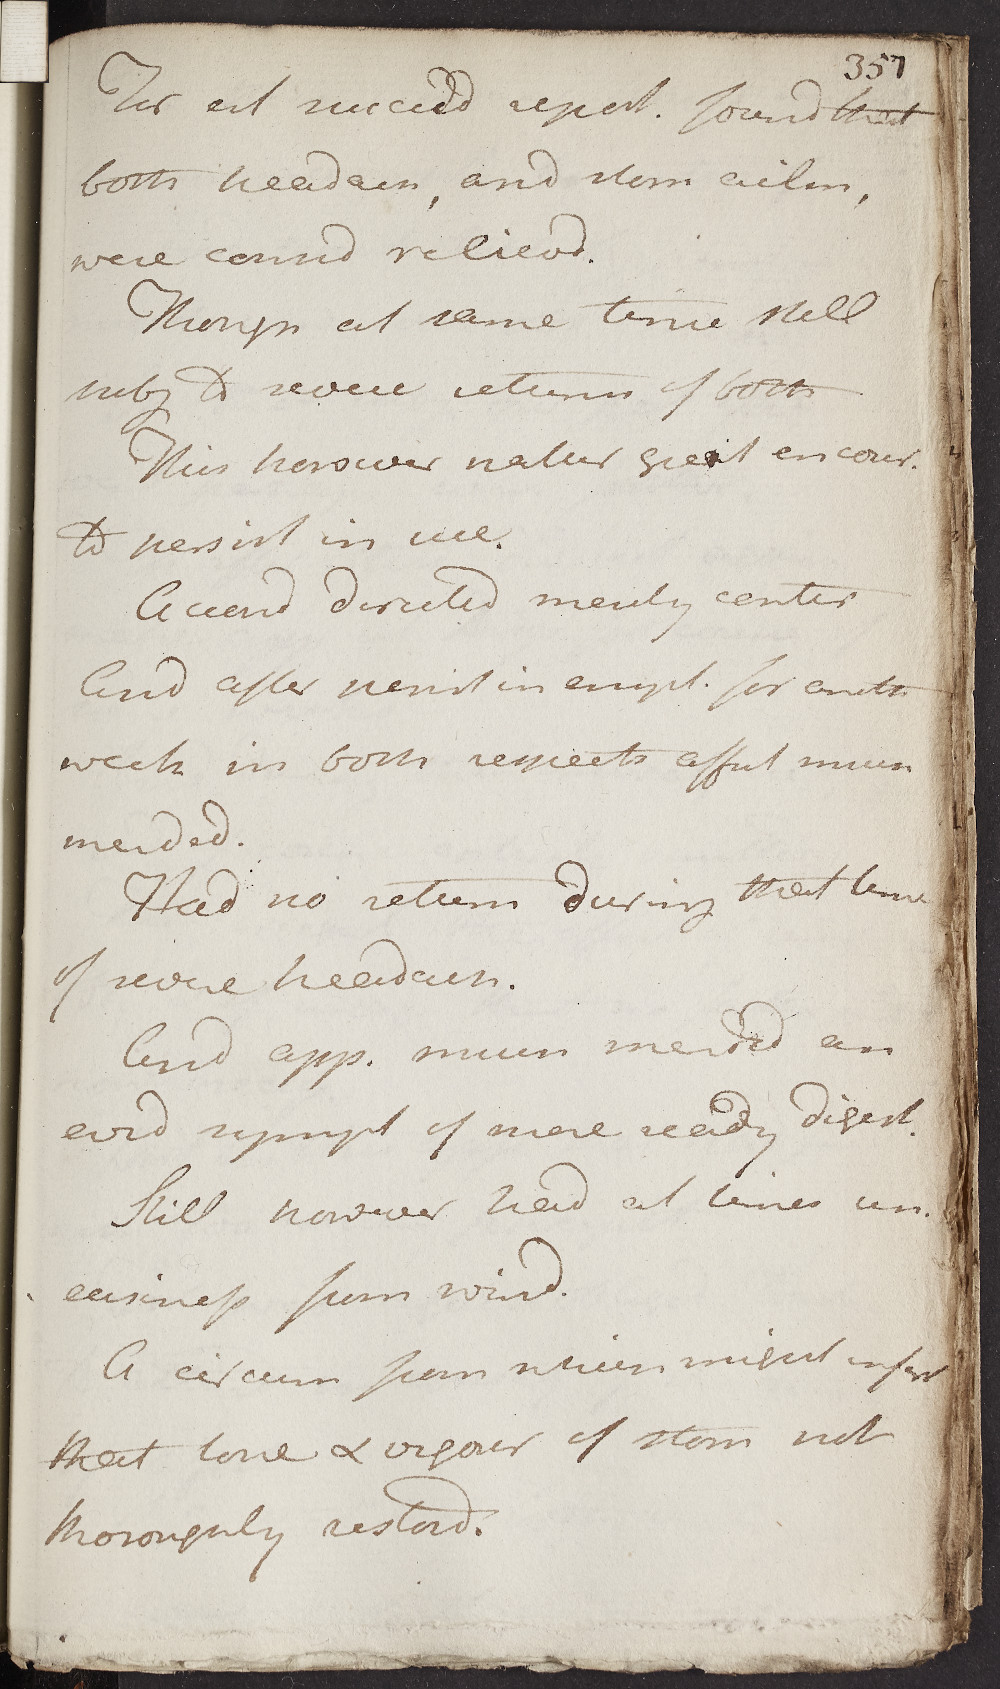 357
For at succeed report. found that
both headach, and stom ailm,
were consid relievd.
Though at same time still
subj to severe returns of both
This however rather great encour.
to persist in use.
Accord directed merely contin
And after persist in empl. for anoth
week in both respects affect much
mended.
Had no return during that time
of severe headach.
And app. much mended an
evid sympt of more ready digest.
Still however had at times un.
easiness from wind.
A circum from which might infer
that tone & vigour of stom not
thoroughly restord.